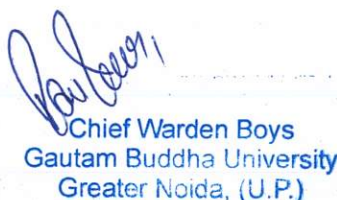 Chief Warden Boys
Gautam Buddha University
Greater Noida, (U.P.)